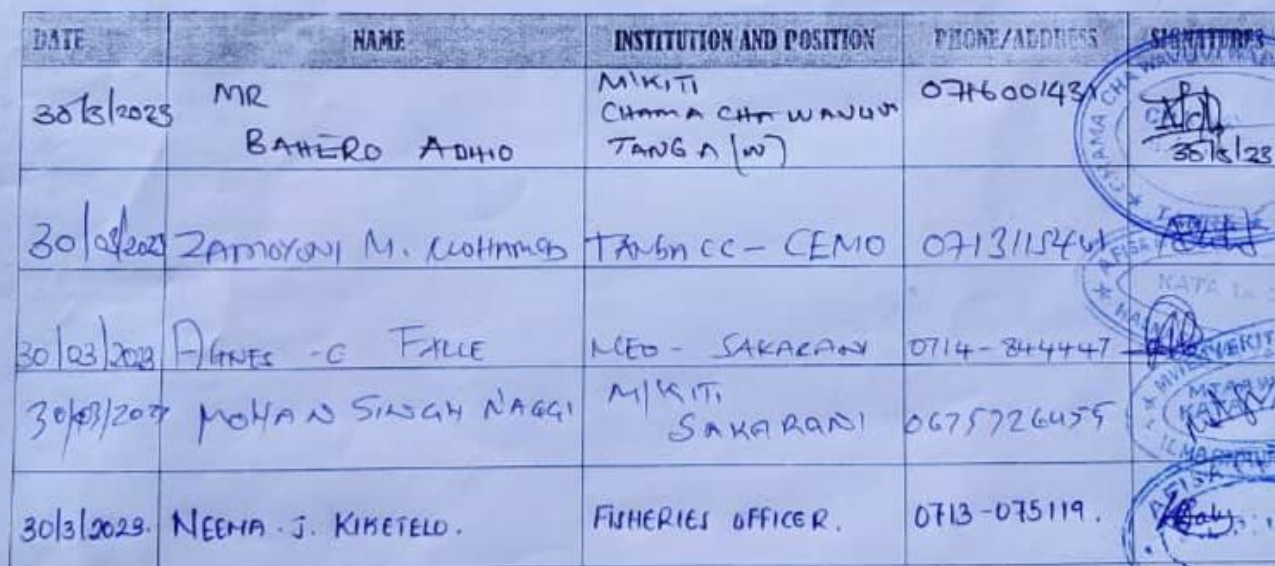 DATE NAME INSTITUTION AND POSITION PHONE/ADDRESS SIGNATURES
30/3/2023 MR BAHERO ADHIO M/KITI CHAMA CHA WAVUVI TANGA (W) 0716001431 30/3/23
30/03/2023 ZAMOYONI M. MOHAMED TANGA CC - CEMO
30/03/2023 AGNES - C FALLE MEO - SAKARANI 0714-844447
30/03/2023 MOHAN SINGH NAGGI M/KITI SAKARANI 0675726455
30/3/2023. NEEMA. J. KIKETELO. FISHERIES OFFICER. 0713-075119.
CHAMA CHA WAVUVI
TANGA
AFISA
KATA
MWENYEKITI
MTAA WA
AFISA